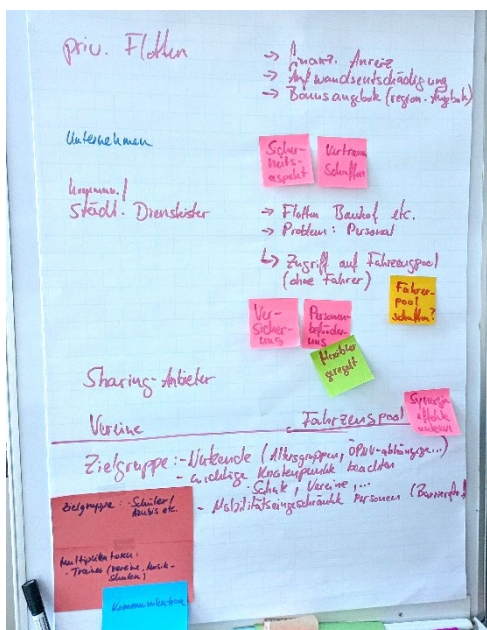 priv. Flotten
-> finanz. Anreize
-> Aufwandsentschädigung
-> Bonusangebote (region. Angebote)
Unternehmen
Sicher-
heits-
aspekt
Vertrauen
schaffen
kommun./
Städt. Dienstleister
-> Flotten Bauhof etc.
-> Problem: Personal
↳ Zugriff auf Fahrzeugpool
(ohne Fahrer)
Fahrer-
pool
schaffen?
Ver-
sicher-
ung
Personen-
beförder-
ung
flexibler
geregelt
Sharing-Anbieter
Vereine
Fahrzeugpool
Synergie-
effekte
Zielgruppe: - Nutzende (Altersgruppen, ÖPNV-abhängige...)
- wichtige Knotenpunkte beachten
- Schule, Vereine,...
- Mobilitätseingeschränkte Personen
Zielgruppe: - Schüler/
Azubis etc.
Multiplikatoren:
- Trainer (Vereine, Musik-
schulen)
Kommunikation